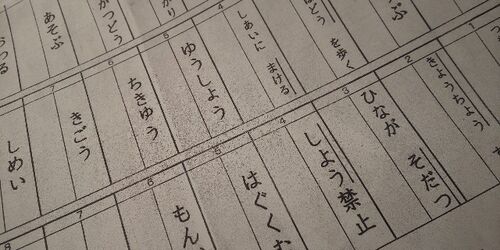 を歩く
あそぶ
しあいに まける
ゆうしょう
ちきゅう
きごう
しめい
きょうちょう
ひなが そだつ
しよう禁止
はぐくむ
もん
1
2
3
4
5
6
7
4
5
6
7
8